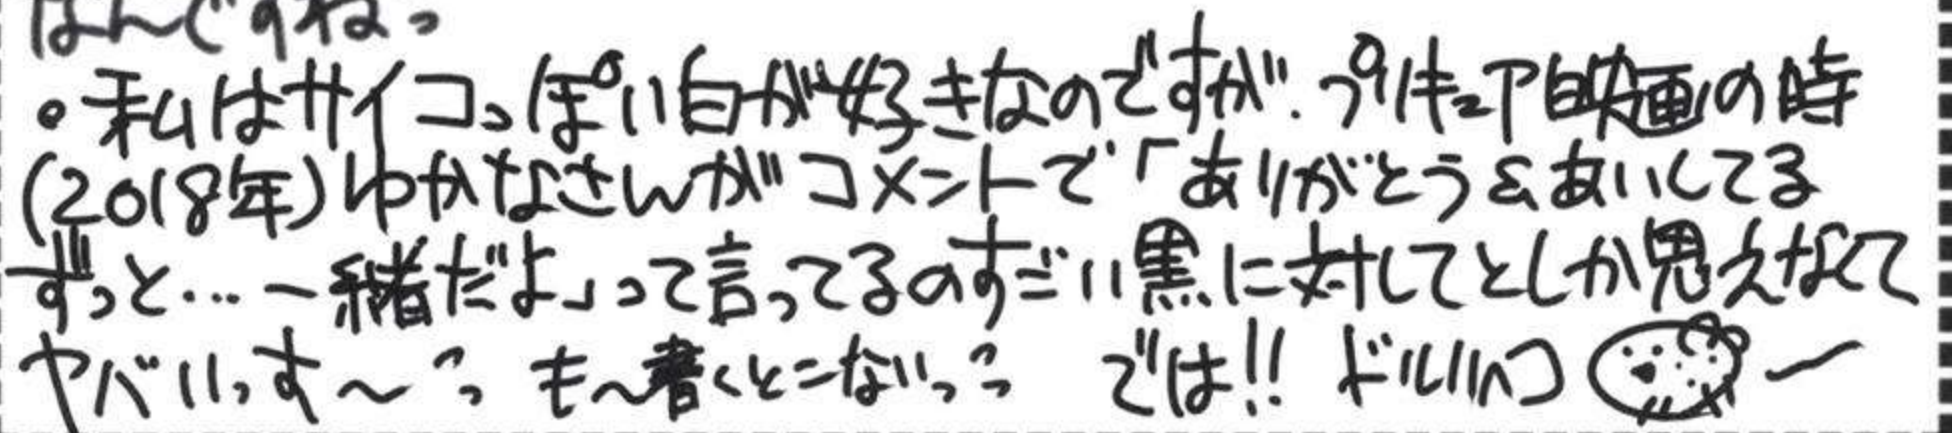 なんですねっ
・私はサイコっぽい白が好きなのですが、プリキュア映画の時
(2018年)ゆかなさんがコメントで「ありがとう&あいしてる
ずっと…一緒だよ」って言ってるのすごい黒に対してとしか思えなくて
ヤバいっす〜っ も〜書くとこないっっ では!! ドルハコ